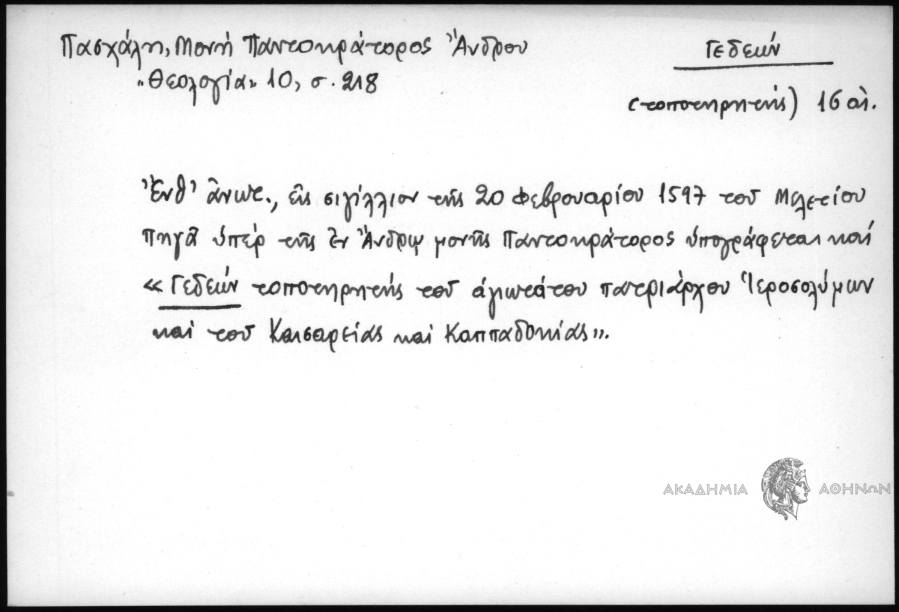 Πασχάλη, Μονή Παντοκράτορος Ἄνδρου
"Θεολογία" 10, σ. 218
Γεδεών
(τοποτηρητής) 16 αἰ.
Ἐνθ' ἄνωτ., εἰς σιγίλλιον τῆς 20 Φεβρουαρίου 1597 τοῦ Μελετίου
Πηγᾶ ὑπέρ τῆς ἐν Ἄνδρῳ μονῆς Παντοκράτορος ὑπογράφεται καί
«Γεδεών τοποτηρητής τοῦ ἁγιωτάτου πατριάρχου Ἱεροσολύμων
καί τοῦ Καισαρείας καί Καππαδοκίας».
ΑΚΑΔΗΜΙΑ ΑΘΗΝΩΝ